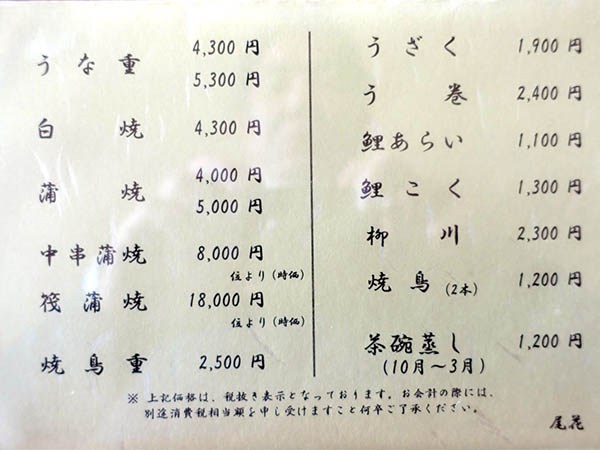 うな重 4,300 円
5,300 円
白焼 4,300 円
蒲焼 4,000 円
5,000 円
中串蒲焼 8,000 円
位より(時価)
筏蒲焼 18,000 円
位より(時価)
焼鳥重 2,500 円
うざく 1,900 円
う巻 2,400 円
鯉あらい 1,100 円
鯉こく 1,300 円
柳川 2,300 円
焼鳥(2本) 1,200 円
茶碗蒸し 1,200 円
(10月〜3月)
※ 上記価格は、税抜き表示となっております。お会計の際には、
別途消費税相当額を申し受けますこと何卒ご了承ください。
尾花